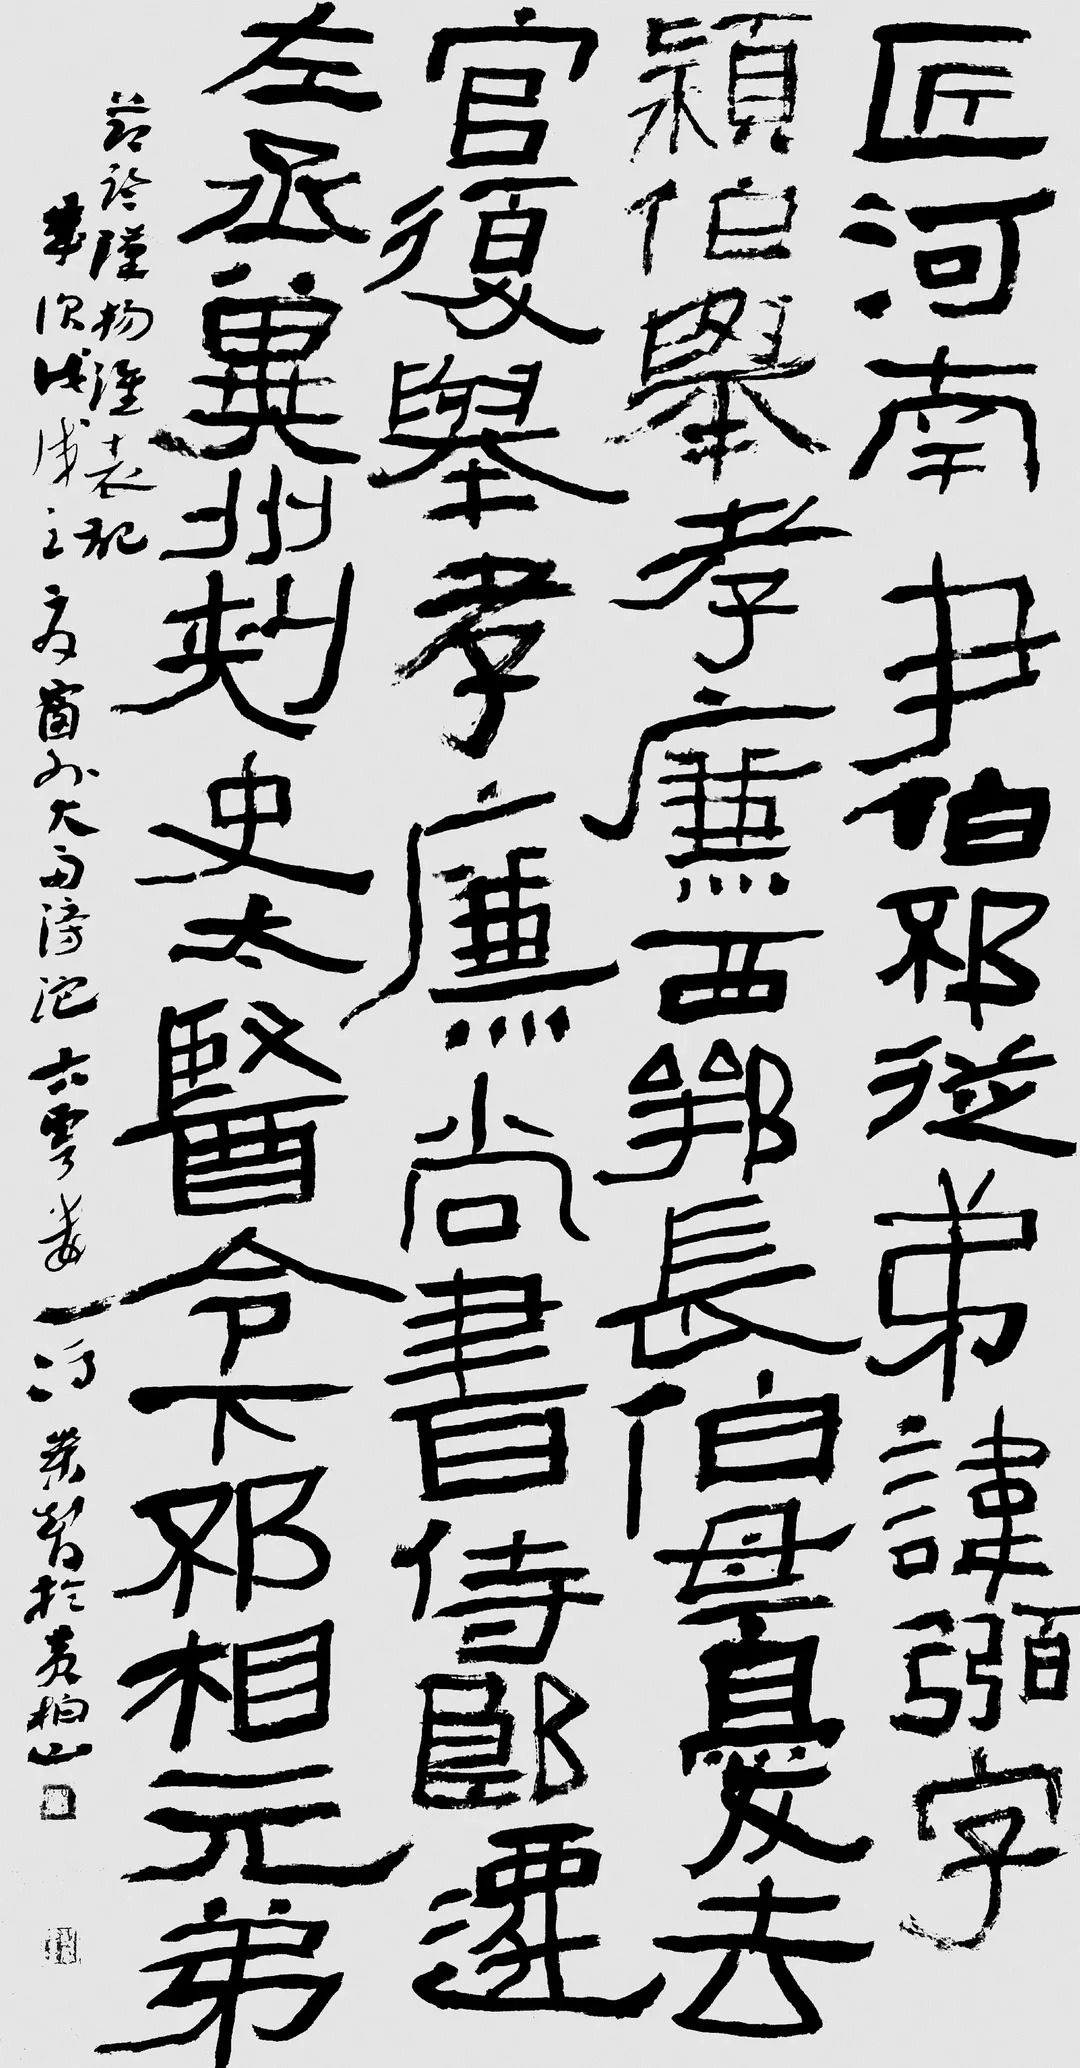 匠河南尹伯邳從弟諱弼字
穎伯舉孝廉西鄂長伯母憂去
官復舉孝廉尚書侍郎遷
左丞冀州刺史太醫令下邳相元弟
節臨漢楊淮表記
歲次戊戌之夏窗外大雨滂沱六雲齋一沙葉智於黃柏山